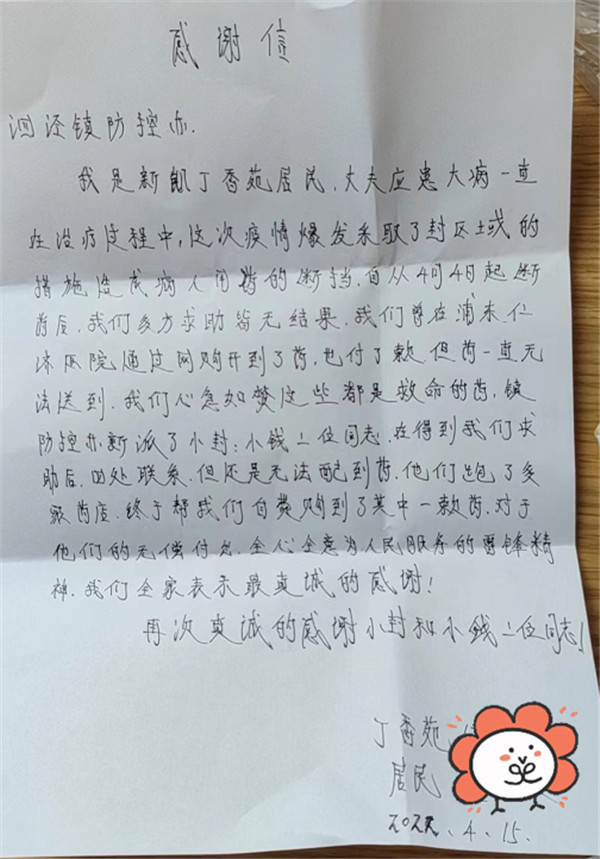 感谢信
泗泾镇防控办.
我是新凯丁香苑居民.丈夫应患大病一直
在治疗过程中,这次疫情爆发采取了封区域的
措施造成病人用药的断挡.自从4月4日起断
药后,我们多方求助皆无结果.我们曾在浦东仁
济医院通过网购开到了药,也付了款.但药一直无
法送到.我们心急如焚这些都是救命的药,镇
防控办新派了小封:小钱二位同志.在得到我们求
助后.四处联系.但还是无法配到药.他们跑了多
家药店.终于帮我们自费购到了其中一款药.对于
他们的无偿付出,全心全意为人民服务的雷锋精
神.我们全家表示最真诚的感谢!
再次真诚的感谢小封和小钱二位同志!
丁香苑
居民
2022.4.15.